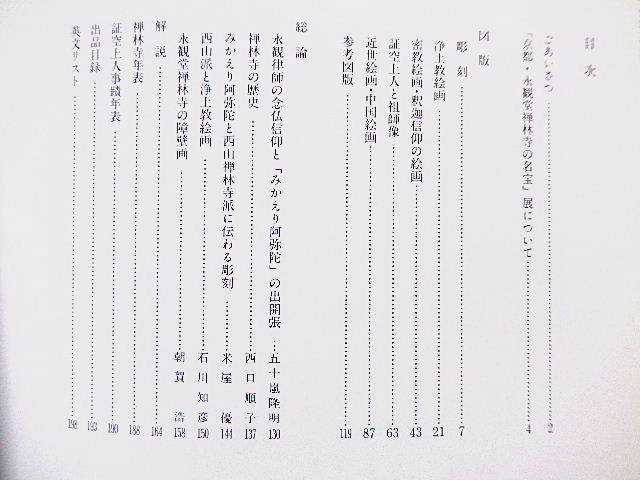 目次
ごあいさつ……2
「京都・永観堂禅林寺の名宝」展について……4
図版
彫刻……7
浄土教絵画……21
密教絵画・釈迦信仰の絵画……43
証空上人と祖師像……63
近世絵画・中国絵画……87
参考図版……119
総論
永観律師の念仏信仰と「みかえり阿弥陀」の出開張…五十嵐隆明 130
禅林寺の歴史……西口順子 137
みかえり阿弥陀と西山禅林寺派に伝わる彫刻……米屋優 144
西山派と浄土教絵画……石川知彦 150
永観堂禅林寺の障壁画……朝賀浩 158
解説……164
禅林寺年表……188
証空上人事蹟年表……190
出品目録……193
英文リスト……198